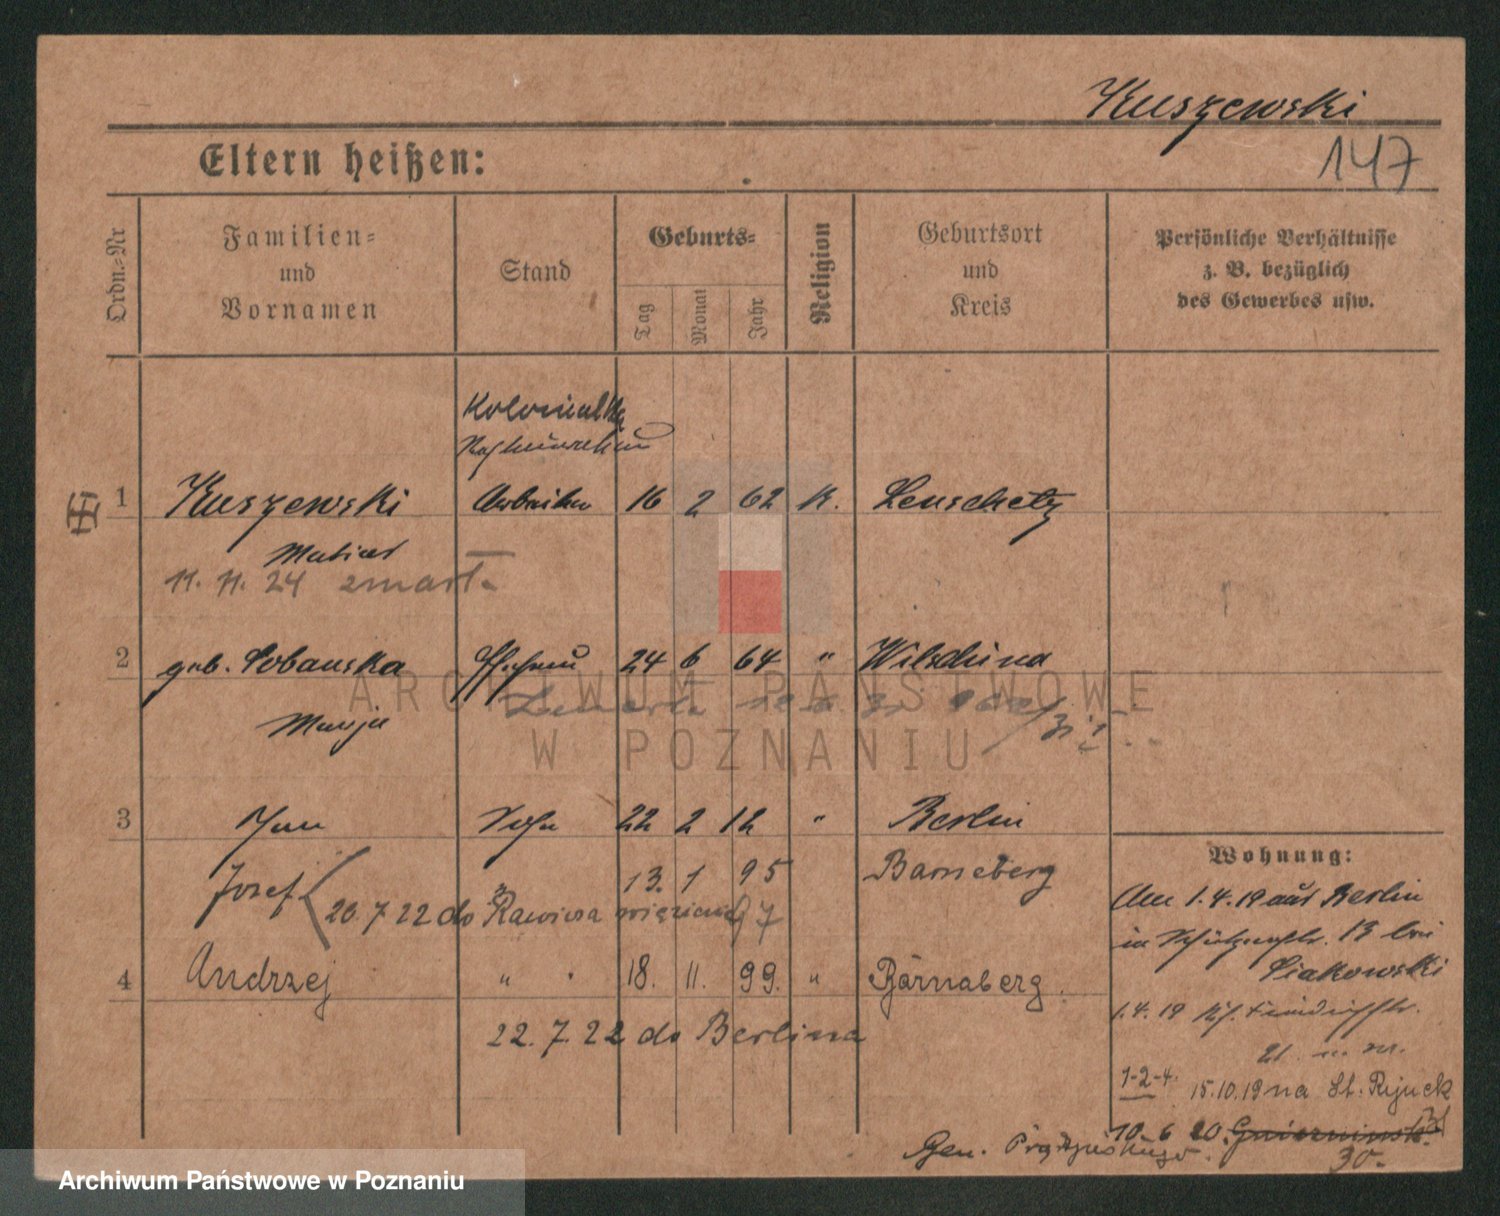 Kuszewski
147
Eltern heißen:
Ordn.-Nr
Familien-
und
Vornamen
Stand
Geburts-
Tag
Monat
Jahr
Religion
Geburtsort
und
Kreis
Persönliche Verhältnisse
z. B. bezüglich
des Gewerbes usw.
1 Kuszewski Arbeiter 16 2 62 K. Leuschetz
11. 11. 24 zmarł
2 geb. Sobanska Ehefrau 24 6 64 " Wilschina
Marja
3 Jan Sohn 22 2 12 " Berlin
Wohnung:
Josef " 13. 1 95 Barneberg
20.7 22 do Rawicza więzienie 97
Am 1.4.19 aus Berlin
in Schützenstr. 13 bei
Siakowski
4 Andrzej " " 18. 11. 99. " Bärnaberg
1.4.19
22. 7. 22 do Berlina
21
1-2-4. 15.10.19 na St. Rynek
10 6 20
Gen. Prądzyńskiego
30.
ARCHIWUM PAŃSTWOWE
W POZNANIU
Archiwum Państwowe w Poznaniu